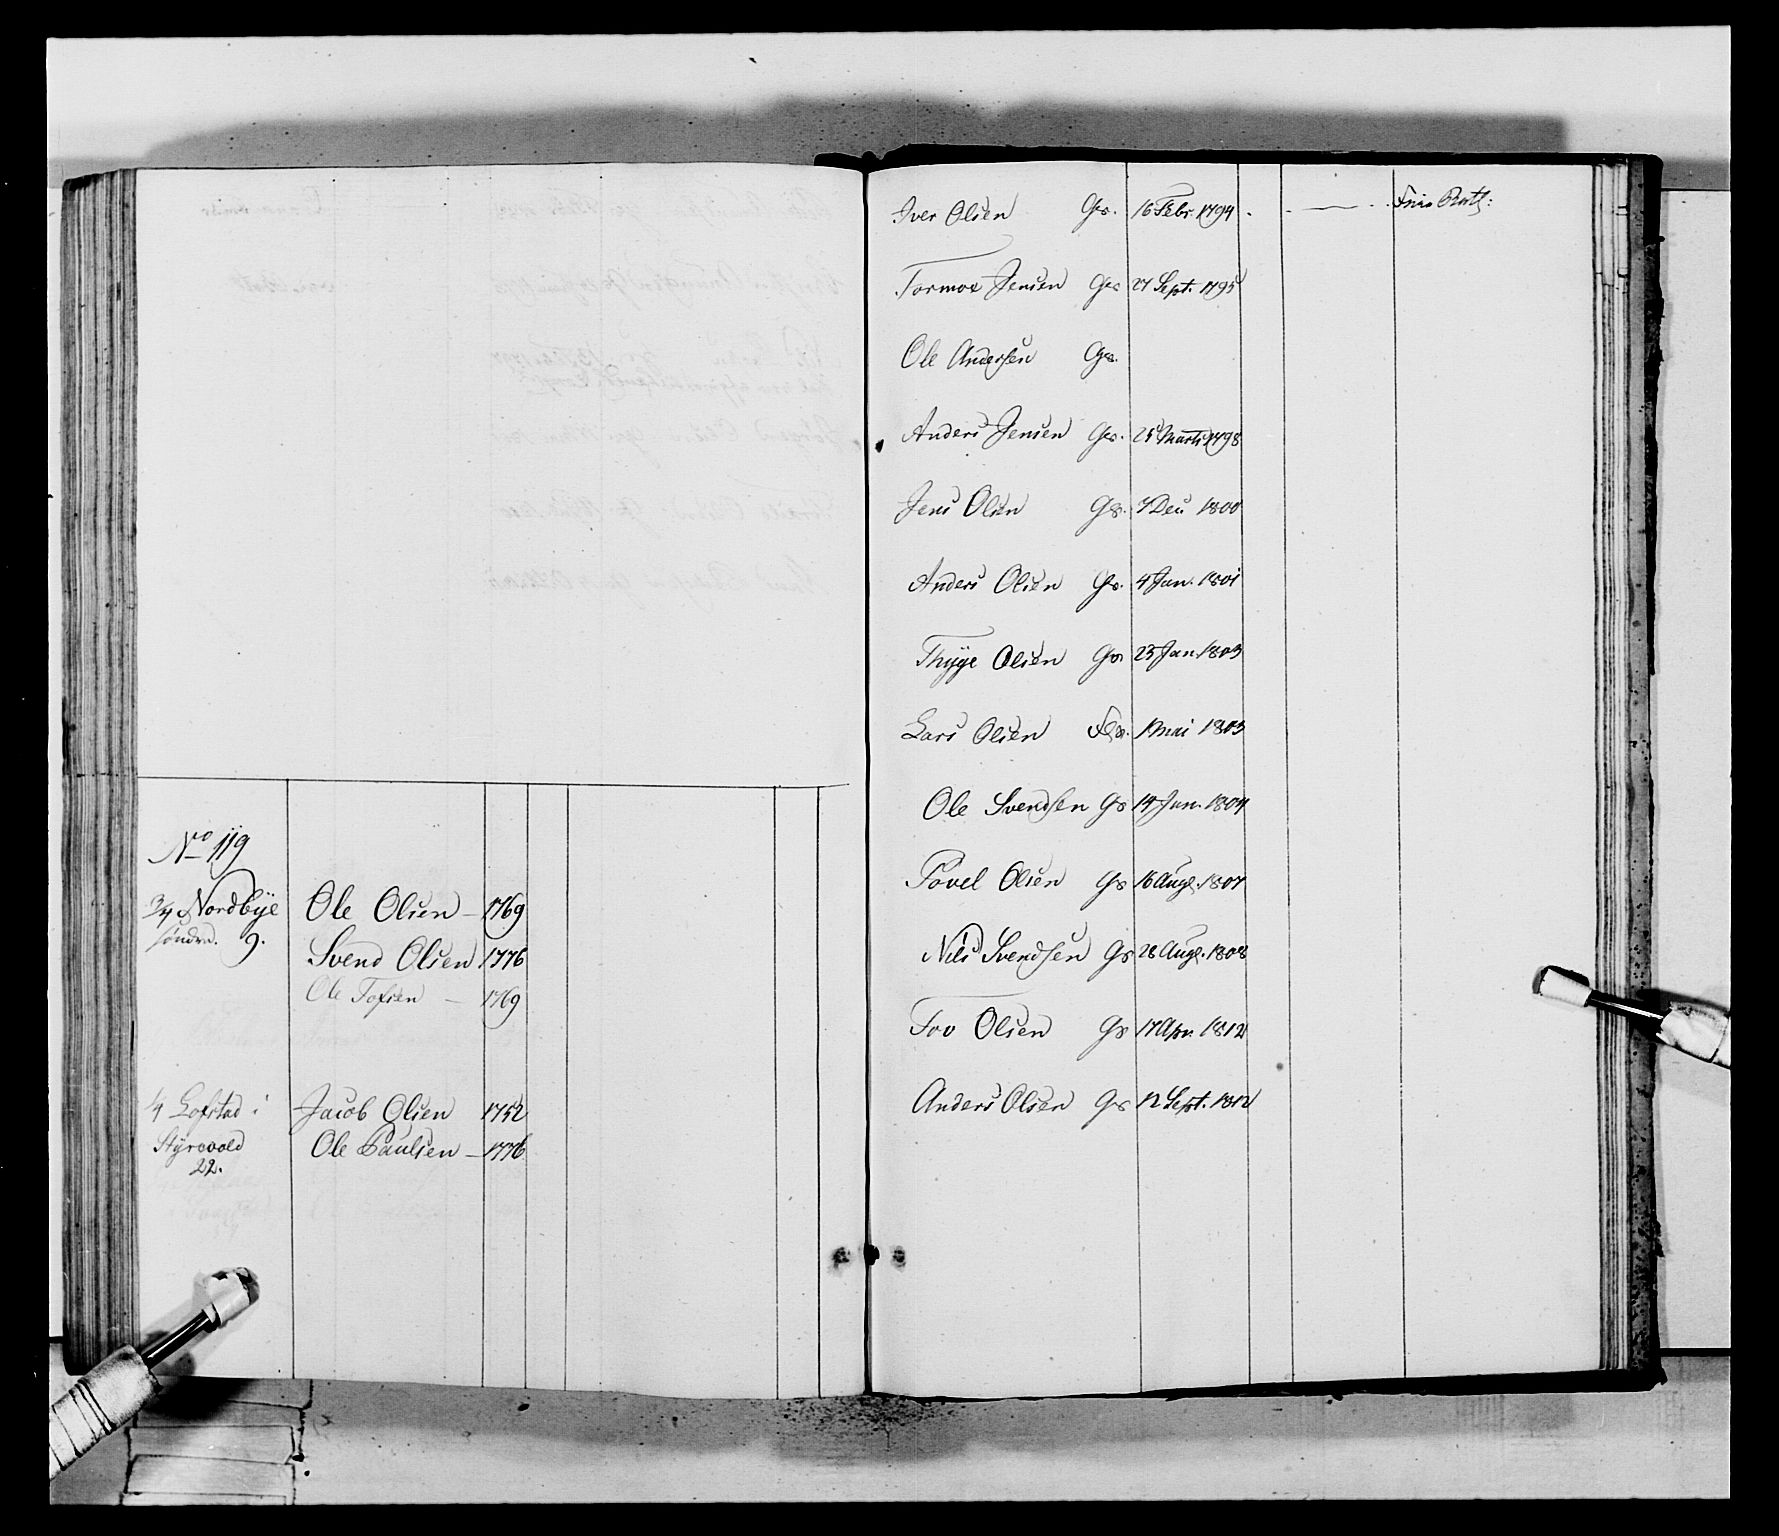 No 119
3/4 Nordbÿe Ole Olsen – 1769
søndre. 9.
Svend Olsen 1776
Ole Tofsen – 1769
1/4 Lofstad i Jacob Olsen 1752
Styrvold Ole Paulsen – 1776
22.
Iver Olsen Gs. 16 Febr. 1794
Tormoe Jensen Gs 27 Sept. 1795
Ole Andersen Gs.
Anders Jensen Gs. 25 Marti 1798
Jens Olsen Gs. 7 Dec 1800
Anders Olsen Gs. 4 Jan. 1801
Thyge Olsen Gs 23 Jan 1803
Lars Olsen 1 mai 1803
Ole Svendsen Gs 14 Jan. 1804
Povel Olsen Gs 16 Aug. 1807
Nils Svendsen Gs 28 Aug. 1808
Tov Olsen Gs 17 Apr. 1812
Anders Olsen Gs 12 Sept. 1812